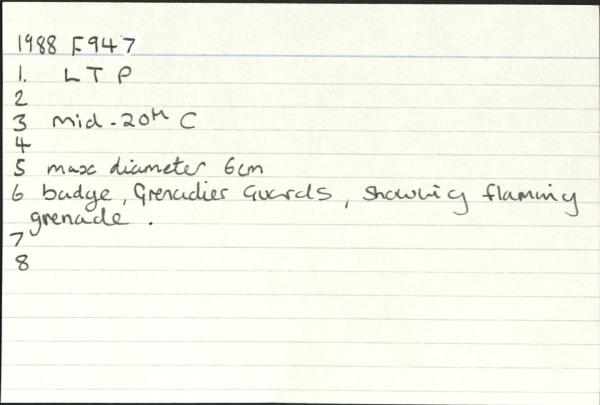 1988 F947
1. L T P
2
3 mid-20th C
4
5 max diameter 6cm
6 badge, Grenadier Guards, showing flaming
grenade.
7
8